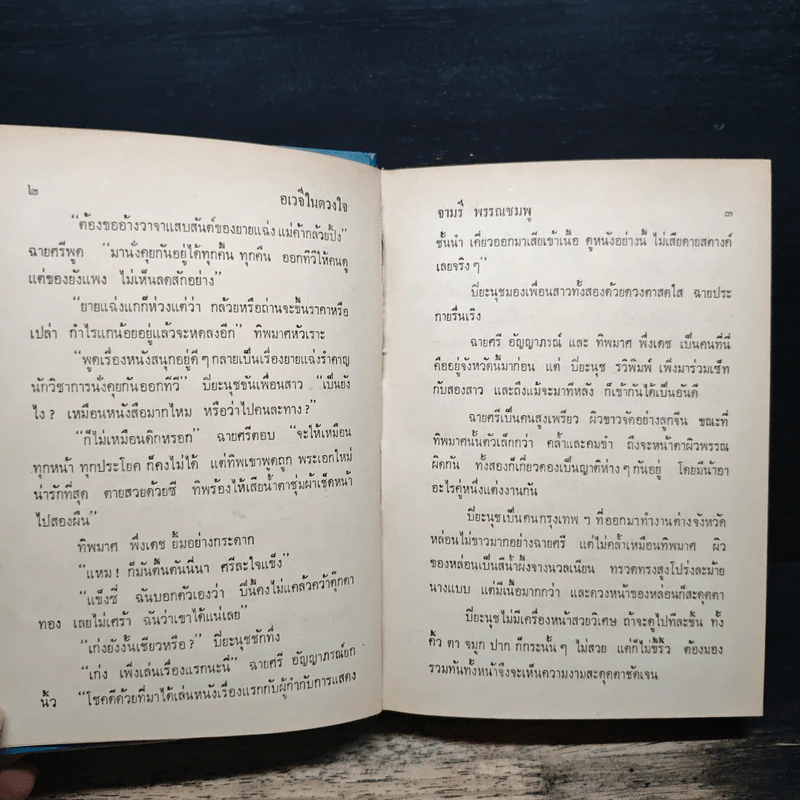 ๒
อเวจีในดวงใจ
“ต้องขออ้างวาจาแสบสันต์ของยายแฉ่ง แม่ค้ากล้วยปิ้ง”
ฉายศรีพูด “มานั่งคุยกันอยู่ได้ทุกคืน ทุกคืน ออกทีวีให้คนดู
แต่ของยังแพง ไม่เห็นลดสักอย่าง”
“ยายแฉ่งแกก็ห่วงแต่ว่า กล้วยหรือถ่านจะขึ้นราคาหรือ
เปล่า กำไรแกน้อยอยู่แล้วจะหดลงอีก” ทิพมาศหัวเราะ
“พูดเรื่องหนังสนุกอยู่ดี ๆ กลายเป็นเรื่องยายแฉ่งรำคาญ
นักวิชาการนั่งคุยกันออกทีวี” ปิยะนุชขันเพื่อนสาว “เป็นยัง
ไง? เหมือนหนังสือมากไหม หรือว่าไปคนละทาง?”
“ก็ไม่เหมือนดิกหรอก” ฉายศรีตอบ “จะให้เหมือน
ทุกหน้า ทุกประโยค ก็คงไม่ได้ แต่ทิพเขาพูดถูก พระเอกใหม่
น่ารักที่สุด ตายสวยด้วยซี ทิพร้องไห้เสียน้ำตาชุ่มผ้าเช็ดหน้า
ไปสองผืน”
ทิพมาศ พึ่งเดช ยิ้มอย่างกระดาก
“แหม! ก็มันตื้นตันนี่นา ศรีละใจแข็ง”
“แข็งซี่ ฉันบอกตัวเองว่า ปีนี้คงไม่แคล้วคว้าตุ๊กตา
ทอง เลยไม่เศร้า ฉันว่าเขาได้แน่เลย”
“เก่งยังงั้นเชียวหรือ?” ปิยะนุชชักทึ่ง
“เก่ง เพิ่งเล่นเรื่องแรกนะนี่” ฉายศรี อัญญาภรณ์ยก
นิ้ว “โชคดีด้วยที่มาได้เล่นหนังเรื่องแรกกับผู้กำกับการแสดง
จามรี พรรณชมพู
๓
ชั้นนำ เคี่ยวออกมาเสียเข้าเนื้อ ดูหนังอย่างนี้ ไม่เสียดายสตางค์
เลยจริง ๆ”
ปิยะนุชมองเพื่อนสาวทั้งสองด้วยดวงตาสดใส ฉายประ
กายรื่นเริง
ฉายศรี อัญญาภรณ์ และ ทิพมาศ พึ่งเดช เป็นคนที่นี่
คืออยู่จังหวัดนี้มาก่อน แต่ ปิยะนุช รวิพิมพ์ เพิ่งมาร่วมเซ็ท
กับสองสาว และถึงแม้จะมาทีหลัง ก็เข้ากันได้เป็นอันดี
ฉายศรีเป็นคนสูงเพรียว ผิวขาวจัดอย่างลูกจีน ขณะที่
ทิพมาศนั้นตัวเล็กกว่า คล้ำและคมขำ ถึงจะหน้าตาผิวพรรณ
ผิดกัน ทั้งสองก็เกี่ยวดองเป็นญาติห่าง ๆ กันอยู่ โดยมีน้าอา
อะไรคู่หนึ่งแต่งงานกัน
ปิยะนุชเป็นคนกรุงเทพ ฯ ที่ออกมาทำงานต่างจังหวัด
หล่อนไม่ขาวมากอย่างฉายศรี แต่ไม่คล้ำเหมือนทิพมาศ ผิว
ของหล่อนเป็นสีน้ำผึ้งจางนวลเนียน ทรวดทรงสูงโปร่งละม้าย
นางแบบ แต่มีเนื้อมากกว่า และดวงหน้าของหล่อนก็สะดุดตา
ปิยะนุชไม่มีเครื่องหน้าสวยวิเศษ ถ้าจะดูไปทีละชิ้น ทั้ง
คิ้ว ตา จมูก ปาก ก็กระนั้น ๆ ไม่สวย แต่ก็ไม่ขี้ริ้ว ต้องมอง
รวมทันทั้งหน้าจึงจะเห็นความงามสะดุดตาชัดเจน